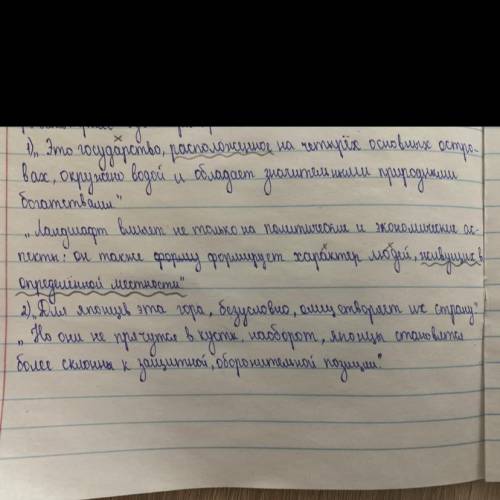 1) „Это государство, расположенное на четырёх основных остро-
вах, окружено водой и обладает значительными природными
богатствами"
„Ландшафт влияет не только на политические и экономические ас-
пекты: он также форму формирует характер людей, живущих в
определённой местности"
2) „Для японцев эта гора, безусловно, олицетворяет их страну."
„Но они не прячутся в кусты, наоборот, японцы становятся
более склонны к защитной, оборонительной позиции"